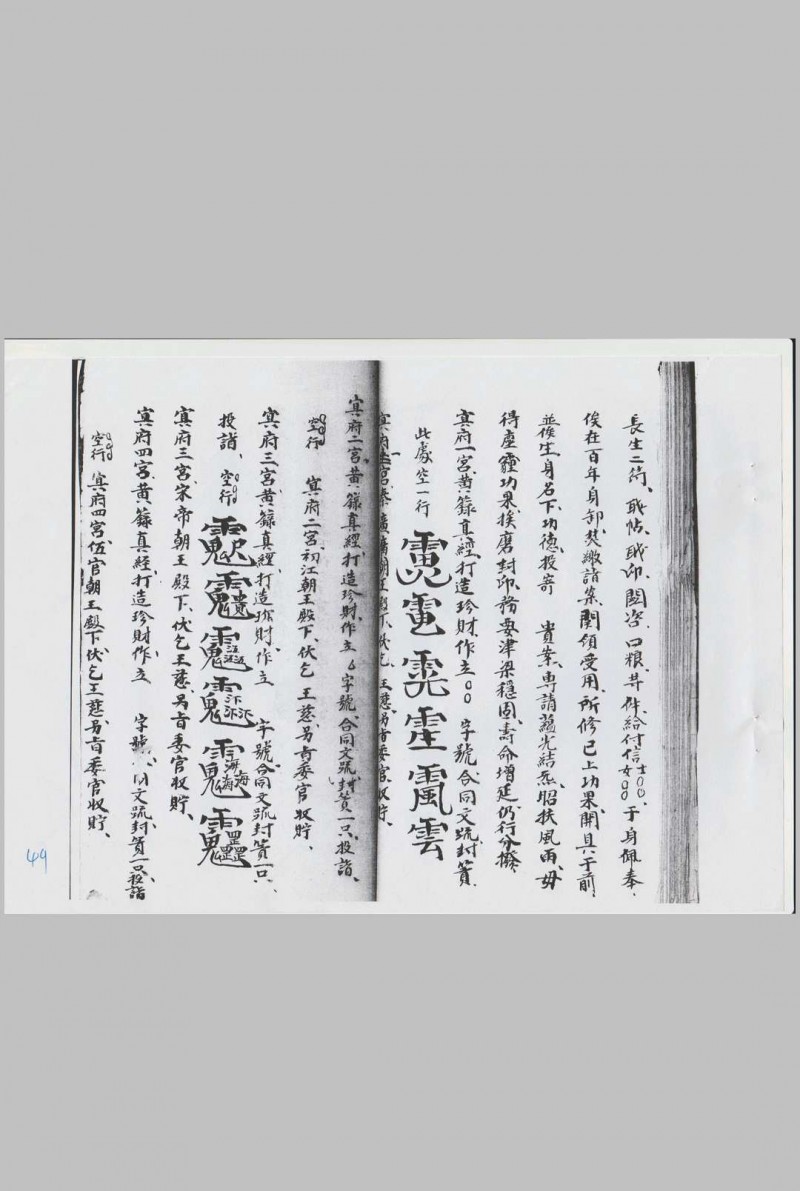 長生二符、戒帖、戒印、関咨、口粮、共件、給付信士女○○○○、于身佩奉、
俟在百年身卸、焚繳請案、関領受用、所修已上功果、開具于前、
並俟生身名下、功德投寄 貴案、專請 光結 、昭扶風雨、毋
得塵霾功果、挨磨封印、務要津梁穩固、壽命增延、仍行分撥、
冥府一宮黄籙真經、打造珍財、作立○○字號合同文號、封簣
此處空一行 雲
冥府一宮秦廣朝王殿下、伏乞 王慈、另旨委官收貯、
冥府二宮黄籙真經、打造珍財、作立 字號合同文號、封簣一只、投詣、
空行 冥府二宮初江朝王殿下、伏乞 王慈、另旨委官收貯、
冥府三宮黄籙真經、打造珍財、作立 字號合同文號、封簣一只、
投詣、空行
冥府三宮宋帝朝王殿下、伏乞王慈、另旨委官收貯、
冥府四宮黄籙真經、打造珍財、作立 字號、 文號、封簣一只、投詣
空行 冥府四宮伍官朝王殿下、伏乞王慈、另旨委官收貯、
49